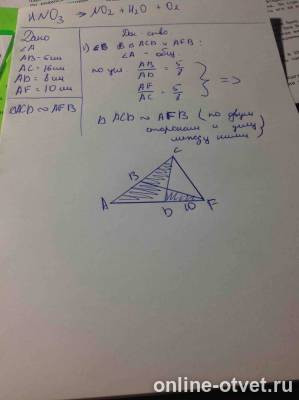 HNO₃ → NO₂ + H₂O + O₂
Дано
∠A
AB = 5 см
AC = 16 см
AD = 8 см
AF = 10 см
▷ACD ∾ AFB
Док-ство
1) ∠B В ▷ ACD и AFB:
∠A - общ
по усл. AB/AD = 5/8
AF/AC = 5/8
} =>
▷ ACD ∾ AFB (по двум
сторонам и углу
между ними)
C
B
A
D
10
F
online-otvet.ru